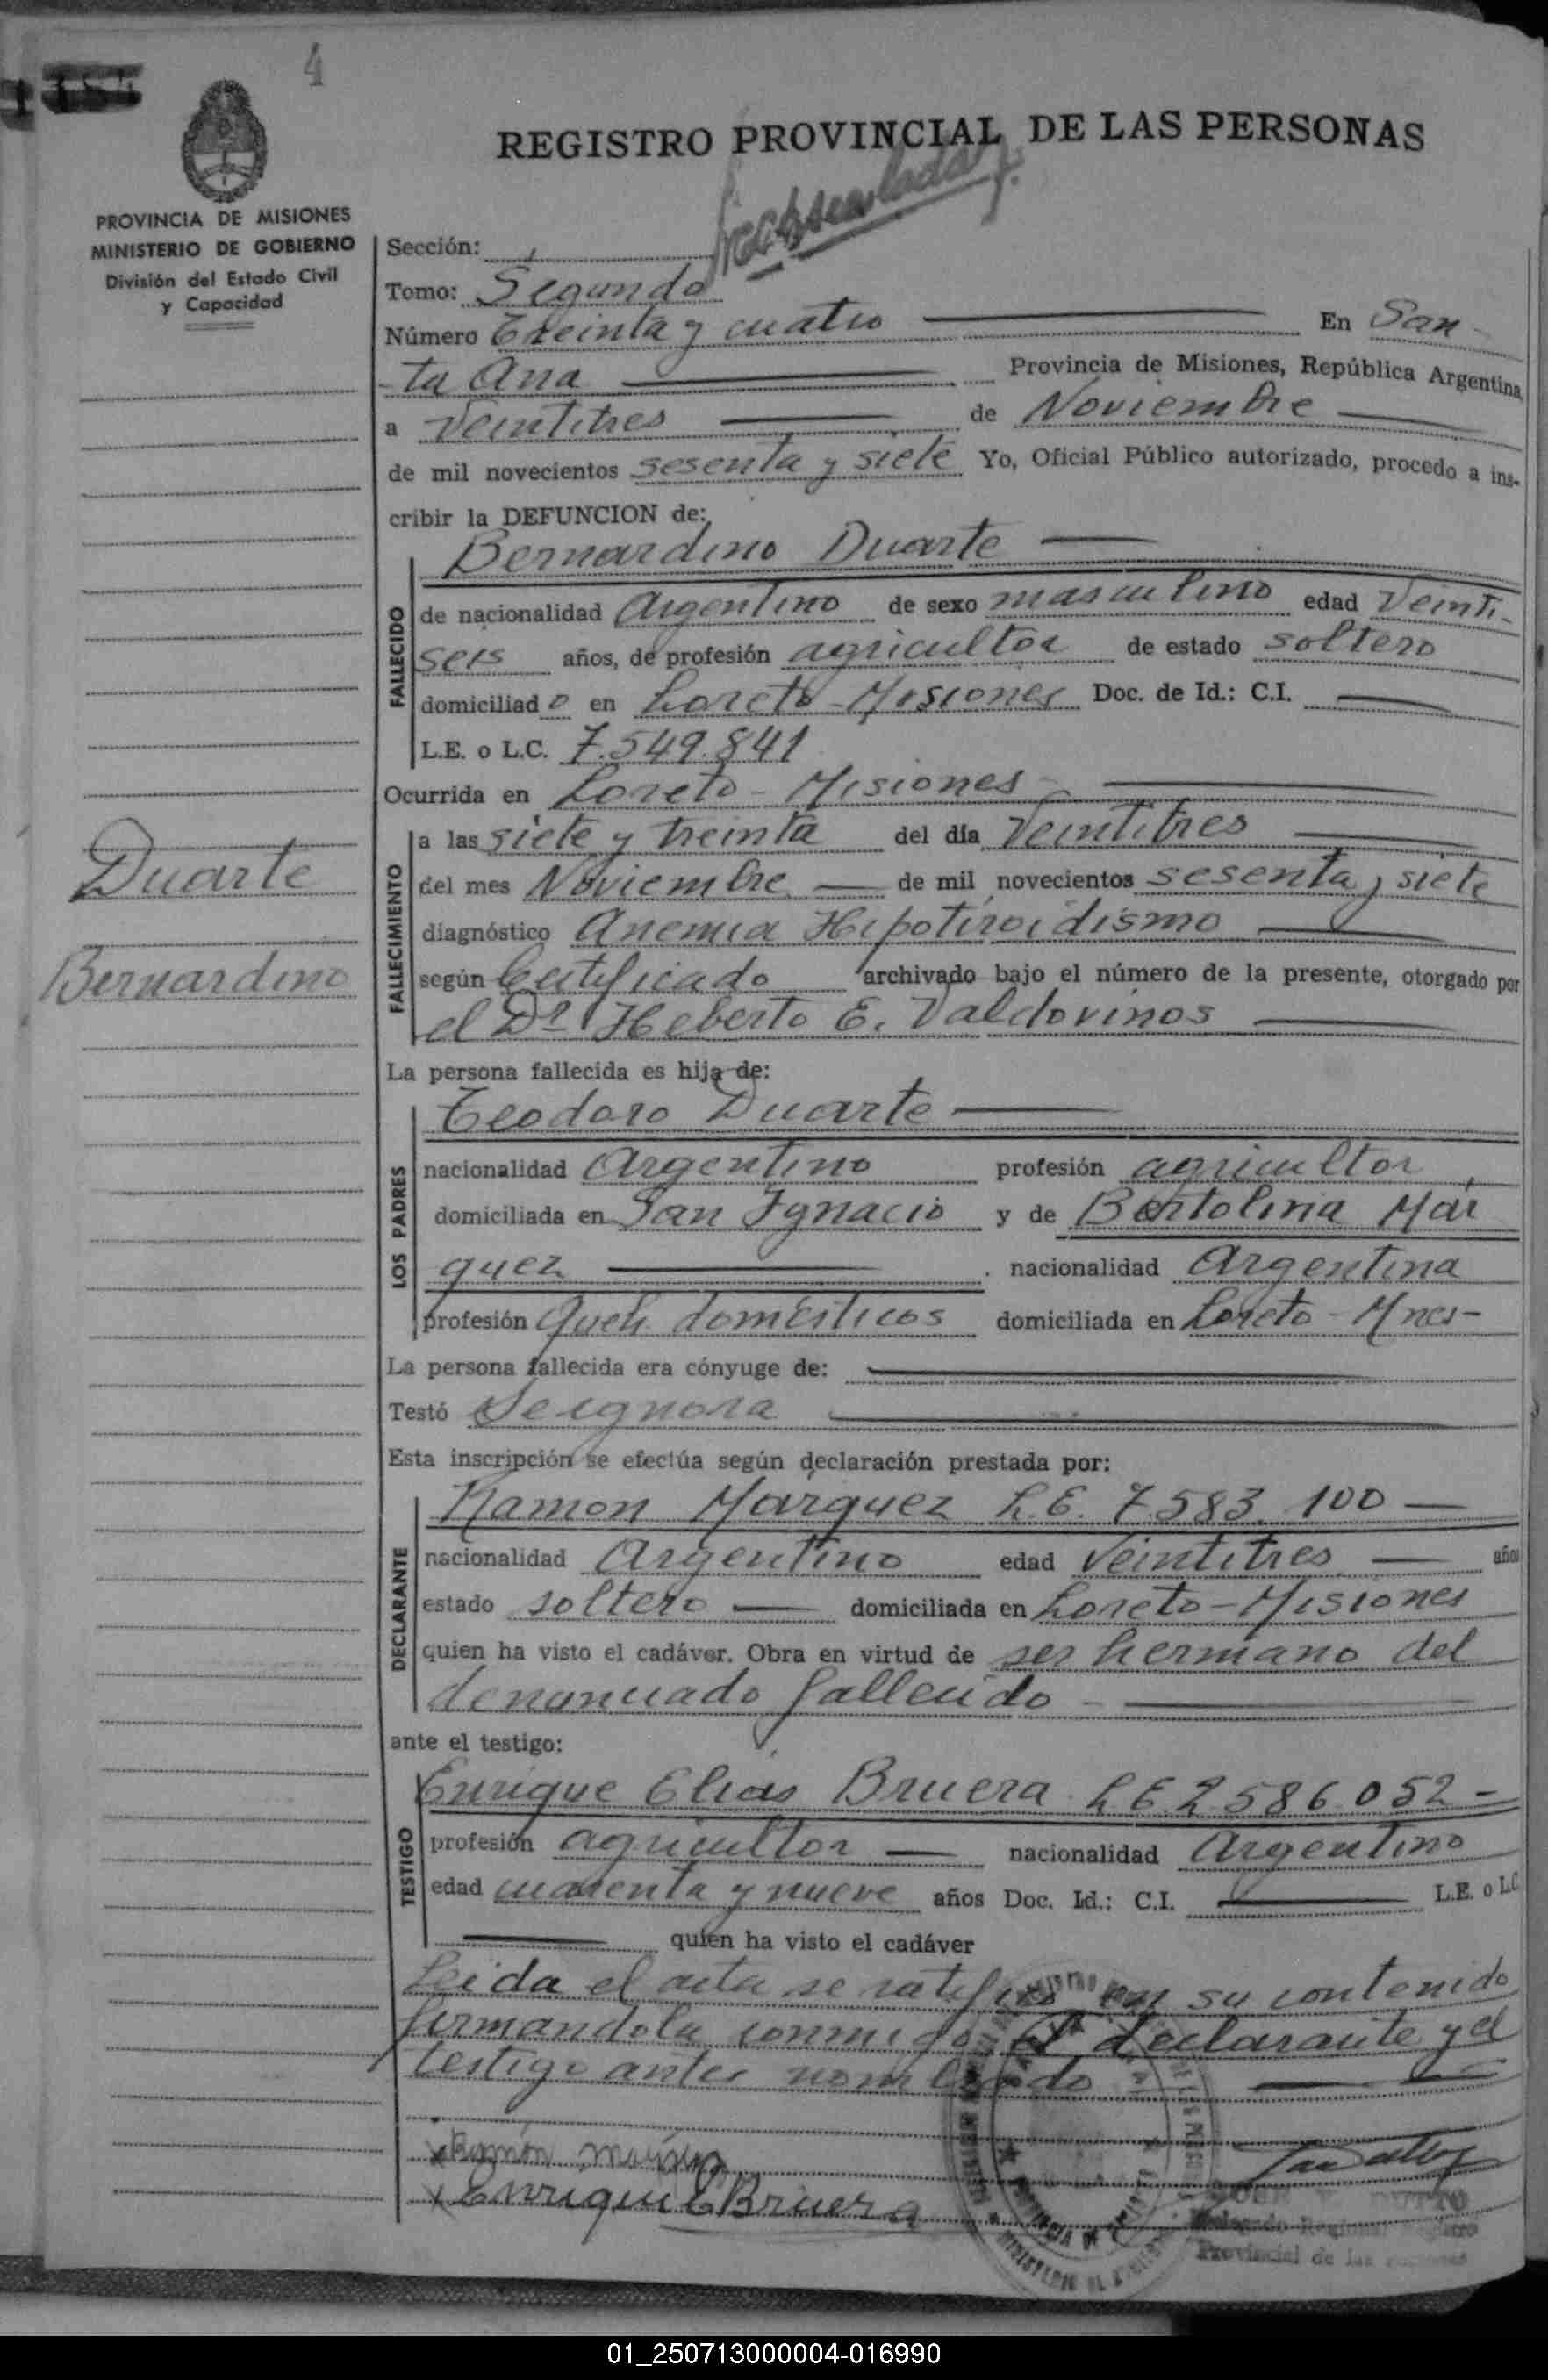 4
REGISTRO PROVINCIAL DE LAS PERSONAS
PROVINCIA DE MISIONES
MINISTERIO DE GOBIERNO
División del Estado Civil
y Capacidad
Sección:
Tomo: Segundo
Número Treinta y cuatro En San
ta Ana Provincia de Misiones, República Argentina,
a Veintitres de Noviembre
de mil novecientos sesenta y siete Yo, Oficial Público autorizado, procedo a ins-
cribir la DEFUNCION de:
Bernardino Duarte
FALLECIDO
de nacionalidad Argentino de sexo masculino edad Veinti-
seis años, de profesión agricultor de estado soltero
domiciliad o en Loreto - Misiones Doc. de Id.: C.I.
L.E. o L.C. 7.549.841
Ocurrida en Loreto - Misiones
FALLECIMIENTO
a las siete y treinta del día Veintitres
del mes Noviembre de mil novecientos sesenta y siete
diagnóstico Anemia Hipotiroidismo
según Certificado archivado bajo el número de la presente, otorgado por
el Dr Heberto E. Valdovinos
Duarte
Bernardino
La persona fallecida es hija de:
LOS PADRES
Teodoro Duarte
nacionalidad Argentino profesión agricultor
domiciliada en San Ignacio y de Bertolina Már
quez nacionalidad Argentina
profesión Queh. domésticos domiciliada en Loreto - Mnes-
La persona fallecida era cónyuge de:
Testó Se ignora
Esta inscripción se efectúa según declaración prestada por:
DECLARANTE
Ramon Marquez L.E. 7.583.100
nacionalidad Argentino edad Veintitres años
estado soltero domiciliada en Loreto - Misiones
quien ha visto el cadáver. Obra en virtud de ser hermano del
denunciado fallecido
ante el testigo:
TESTIGO
Enrique Elias Bruera L E 2.586.052 -
profesión agricultor nacionalidad Argentino
edad cuarenta y nueve años Doc. Id.: C.I. L.E. o L.C
quien ha visto el cadáver
Leida el acta se ratifico en su contenido
firmandola conmigo el declarante y el
testigo antes nombrado
Ramón
Enrique E Bruera
DUTTO
Delegado Regional
Provincial de las
01_250713000004-016990